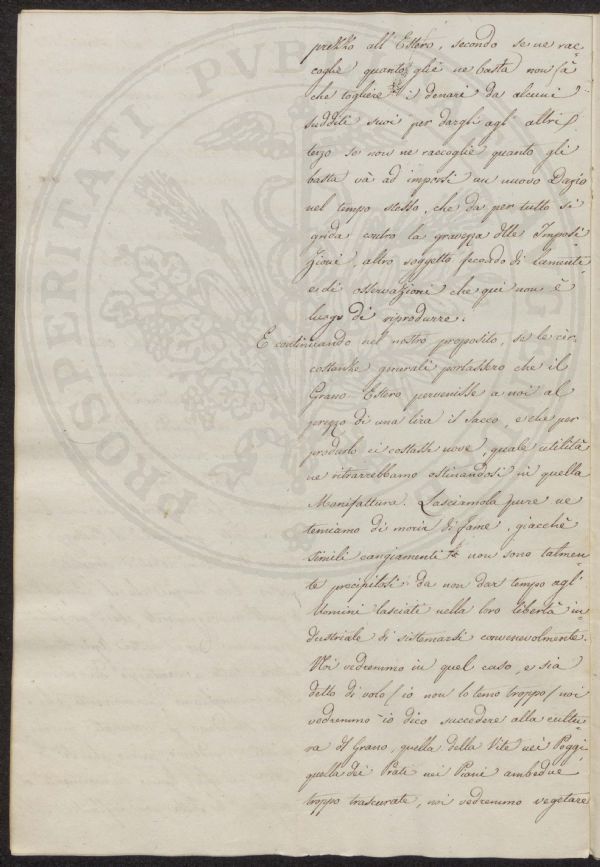 prezzo all' Estero, secondo se ne rac=
coglie quanto gliè ne basta non fà
che togliere i denari da alcuni
sudditi suoi per dargli agl' altri/
terzo se non ne raccoglie quanto gli
basta và ad imporsi un nuovo Dazio
nel tempo stesso, che da per tutto si
grida contro la gravezza delle Imposi
zioni, altro soggetto fecondo di lamenti
e di osservazioni che qui non è
luogo di riprodurre.
E continuando nel nostro proposito, se le cir=
costanze generali portassero che il
Grano Estero pervenisse a noi al
prezzo di una lira il sacco, e che per
produrlo ci costasse nove, quale utilità
ne ritrarrebbamo ostinandosi in quella
Manifattura. Lasciamola pure ne
temiamo di morir di fame, giacchè
simili cangiamenti non sono talmen=
te precipitosi da non dar tempo agl'
Uomini lasciati nella loro libertà in=
dustriale di sistemarsi convenevolmente.
Noi vedremmo in quel caso, e sia
detto di volo / io non lo temo troppo / noi
vedremmo io dico succedere alla cultu=
ra del Grano, quella della Vite nei Poggi,
quella dei Prati nei Piani ambedue
troppo trascurate, noi vedremmo vegetare
PROSPERITATI PVB